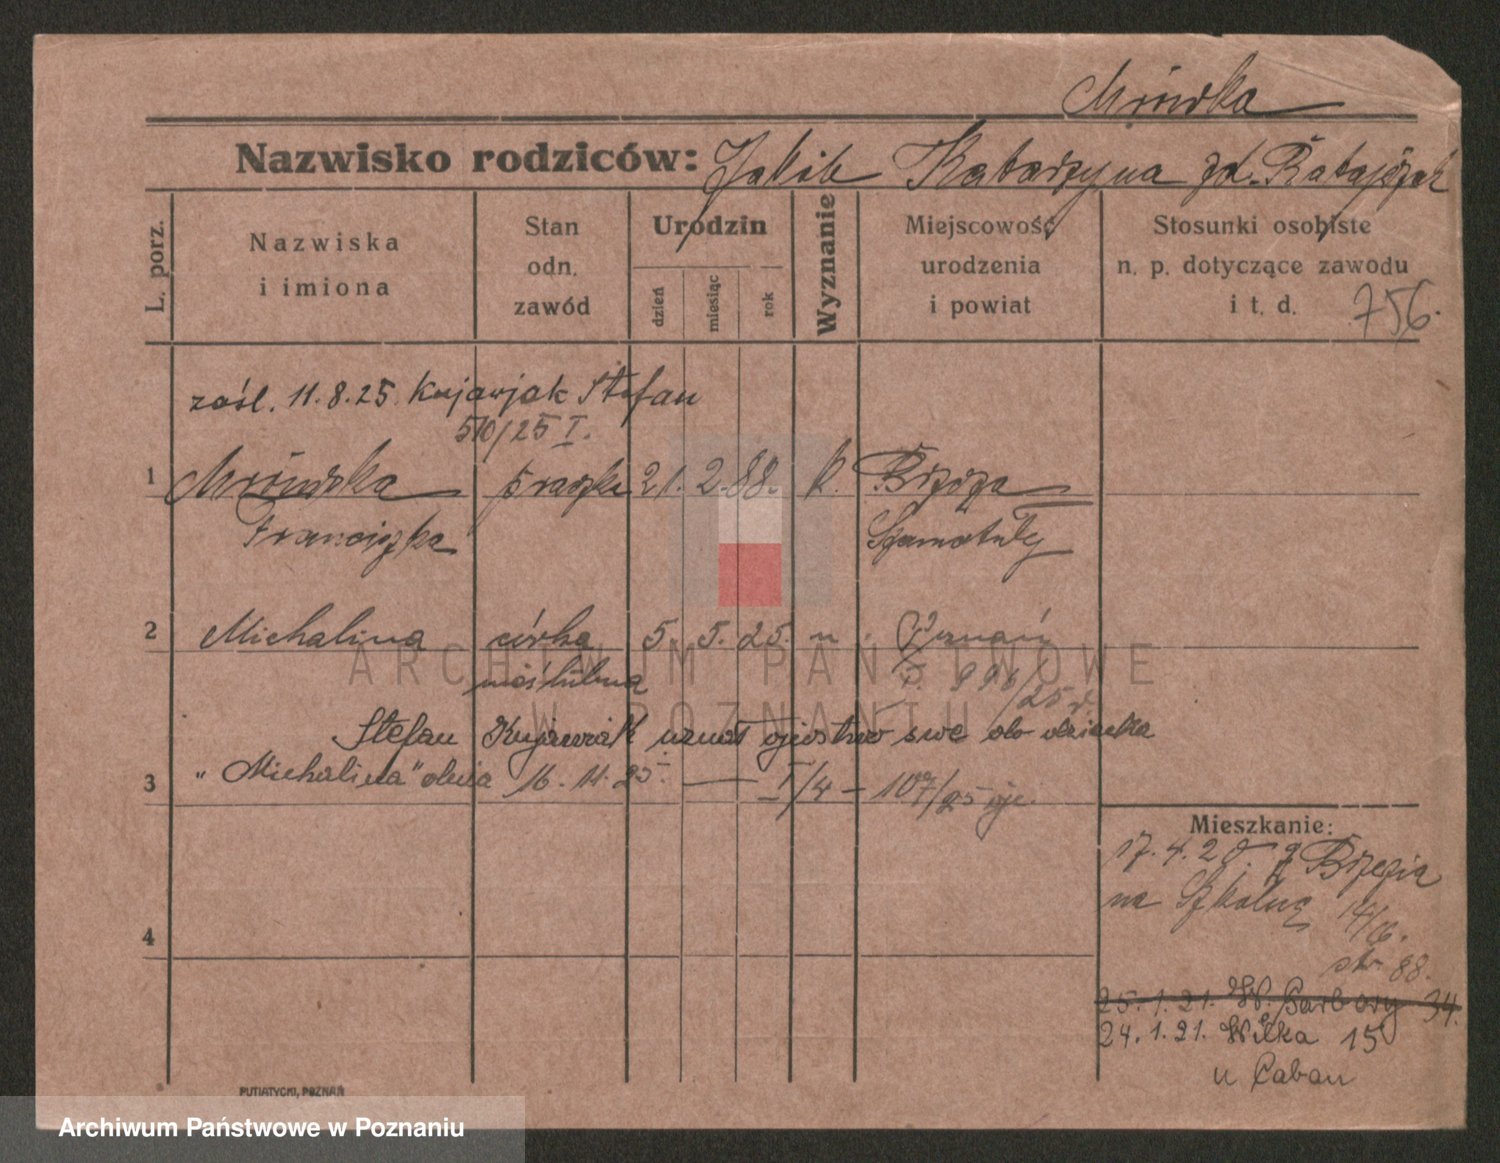 Mrówka
Nazwisko rodziców: Jakób Katarzyna zd. Ratajczak
L. porz.
Nazwiska
i imiona
Stan
odn.
zawód
Urodzin
dzień
miesiąc
rok
Wyznanie
Miejscowość
urodzenia
i powiat
Stosunki osobiste
n. p. dotyczące zawodu
i t. d.
756.
zaśl. 11.8.25. Kujawjak Stefan
510/25 I.
1 Mrówka praczka 21. 2. 88. k. Brzoza
Franciszka Szamotuły
2 Michalina córka 5. 5. 25. n. Poznań
nieślubna 996/25
Stefan Kujawiak uznał ojcostwo swe do dziecka
3 "Michalina" dnia 16. 11. 25. — I/4 – 107/25
Mieszkanie:
17. 4. 20. z Brzezia
na Szkolną 14/16.
str 88.
25. 1. 21. W. Garbary 34.
24. 1. 21. Wilka 15
u Caban
4
PUTIATYCKI, POZNAŃ
ARCHIWUM PAŃSTWOWE
W POZNANIU
Archiwum Państwowe w Poznaniu